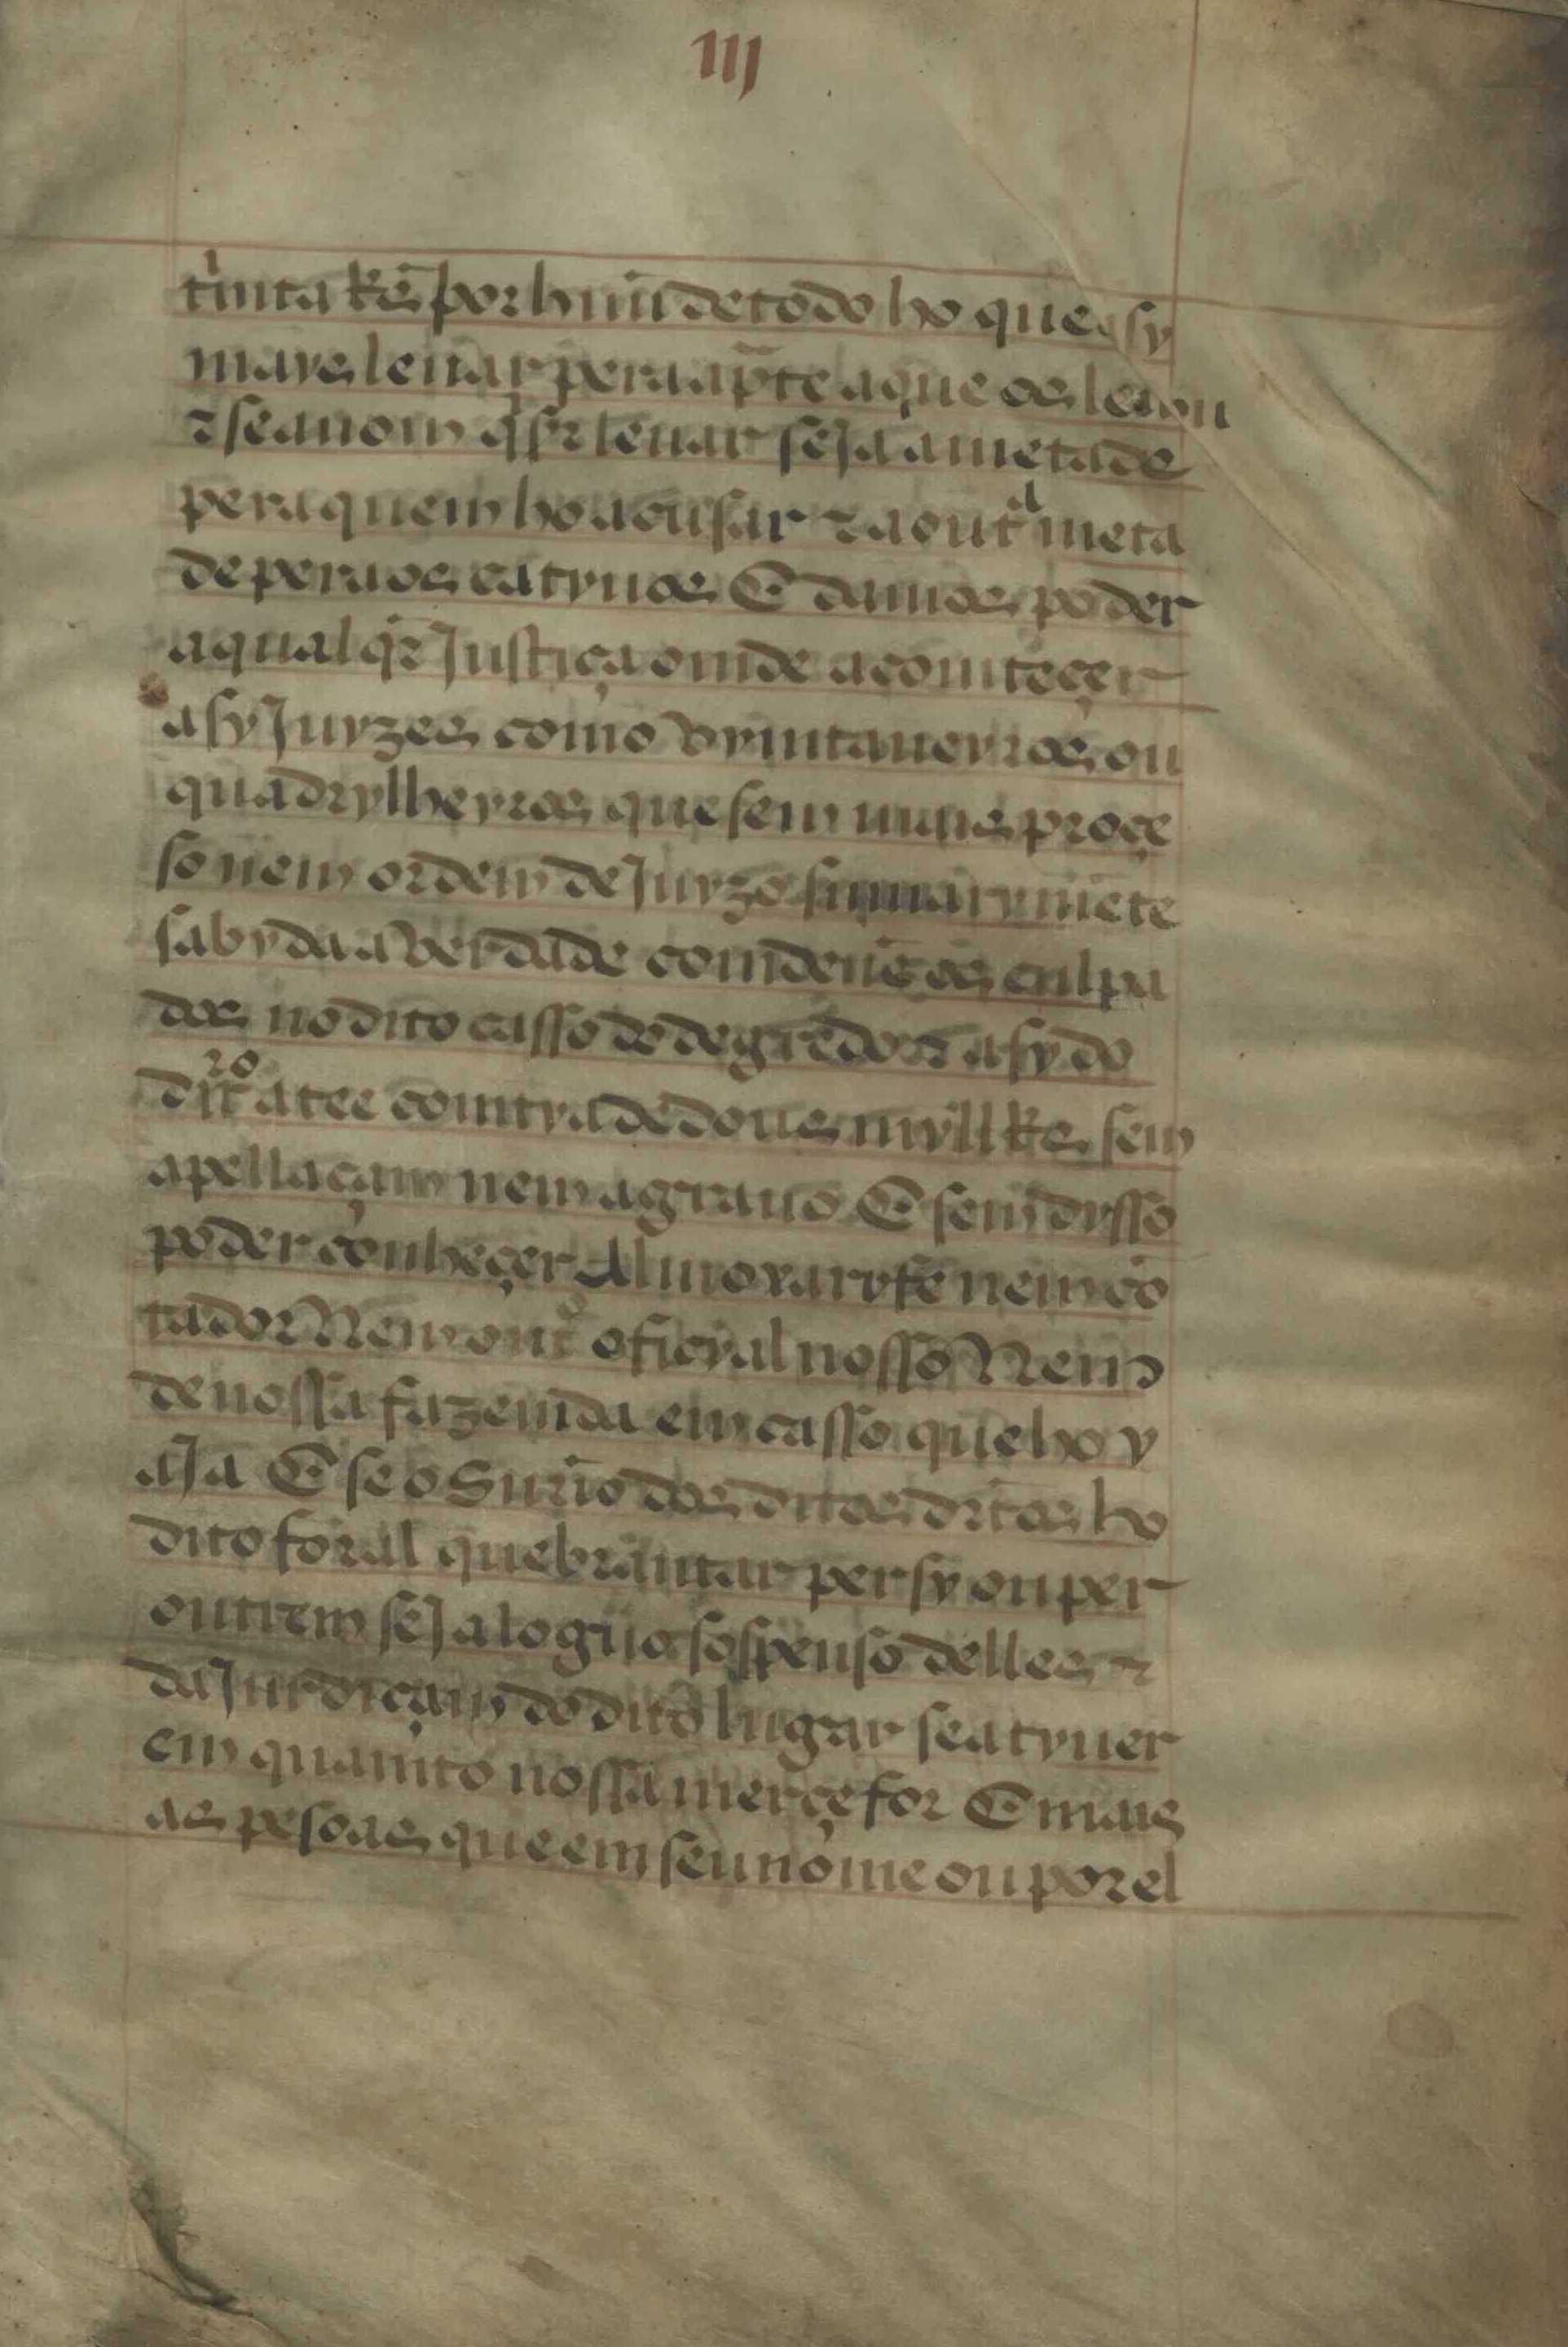 iij
trinta rs̃ por huũ de todo ho que asy
mays leuar pera a p̃te a que os leuou
⁊ se a nom q̃sr leuar seJa a metade
pera quem ho acusar ⁊ a outᵃ meta
de pera os catyuos E damos poder
a qual q̃r Justiça omde acomteçer
asy Juyzes como vyntaneyros ou
quadrylheyros que sem mays proçe
so nem ordem de Juyzo sumarymẽte
sabyda a verdade comdenẽ os culpa
dos no dito casso de degredo ⁊ asy do
dirᵒ atee comtya de dous myll rs̃ sem
apellaçam nem agrauo E sem dysso
poder conheçer Almoxaryfe nem cõ
tador Nem outᵒ ofiçyal nosso Nem
de nossa fazemda em casso que ho y
aJa E se o Surio dos ditos dr̃tos ho
dito foral quebrantar per sy ou per
outrem seJa loguo sospenso delles ⁊
da Jurdiçam do dito lugar se a tyuer
em quamto nossa merçe for E mais
as pesoas que em seu nome ou por el